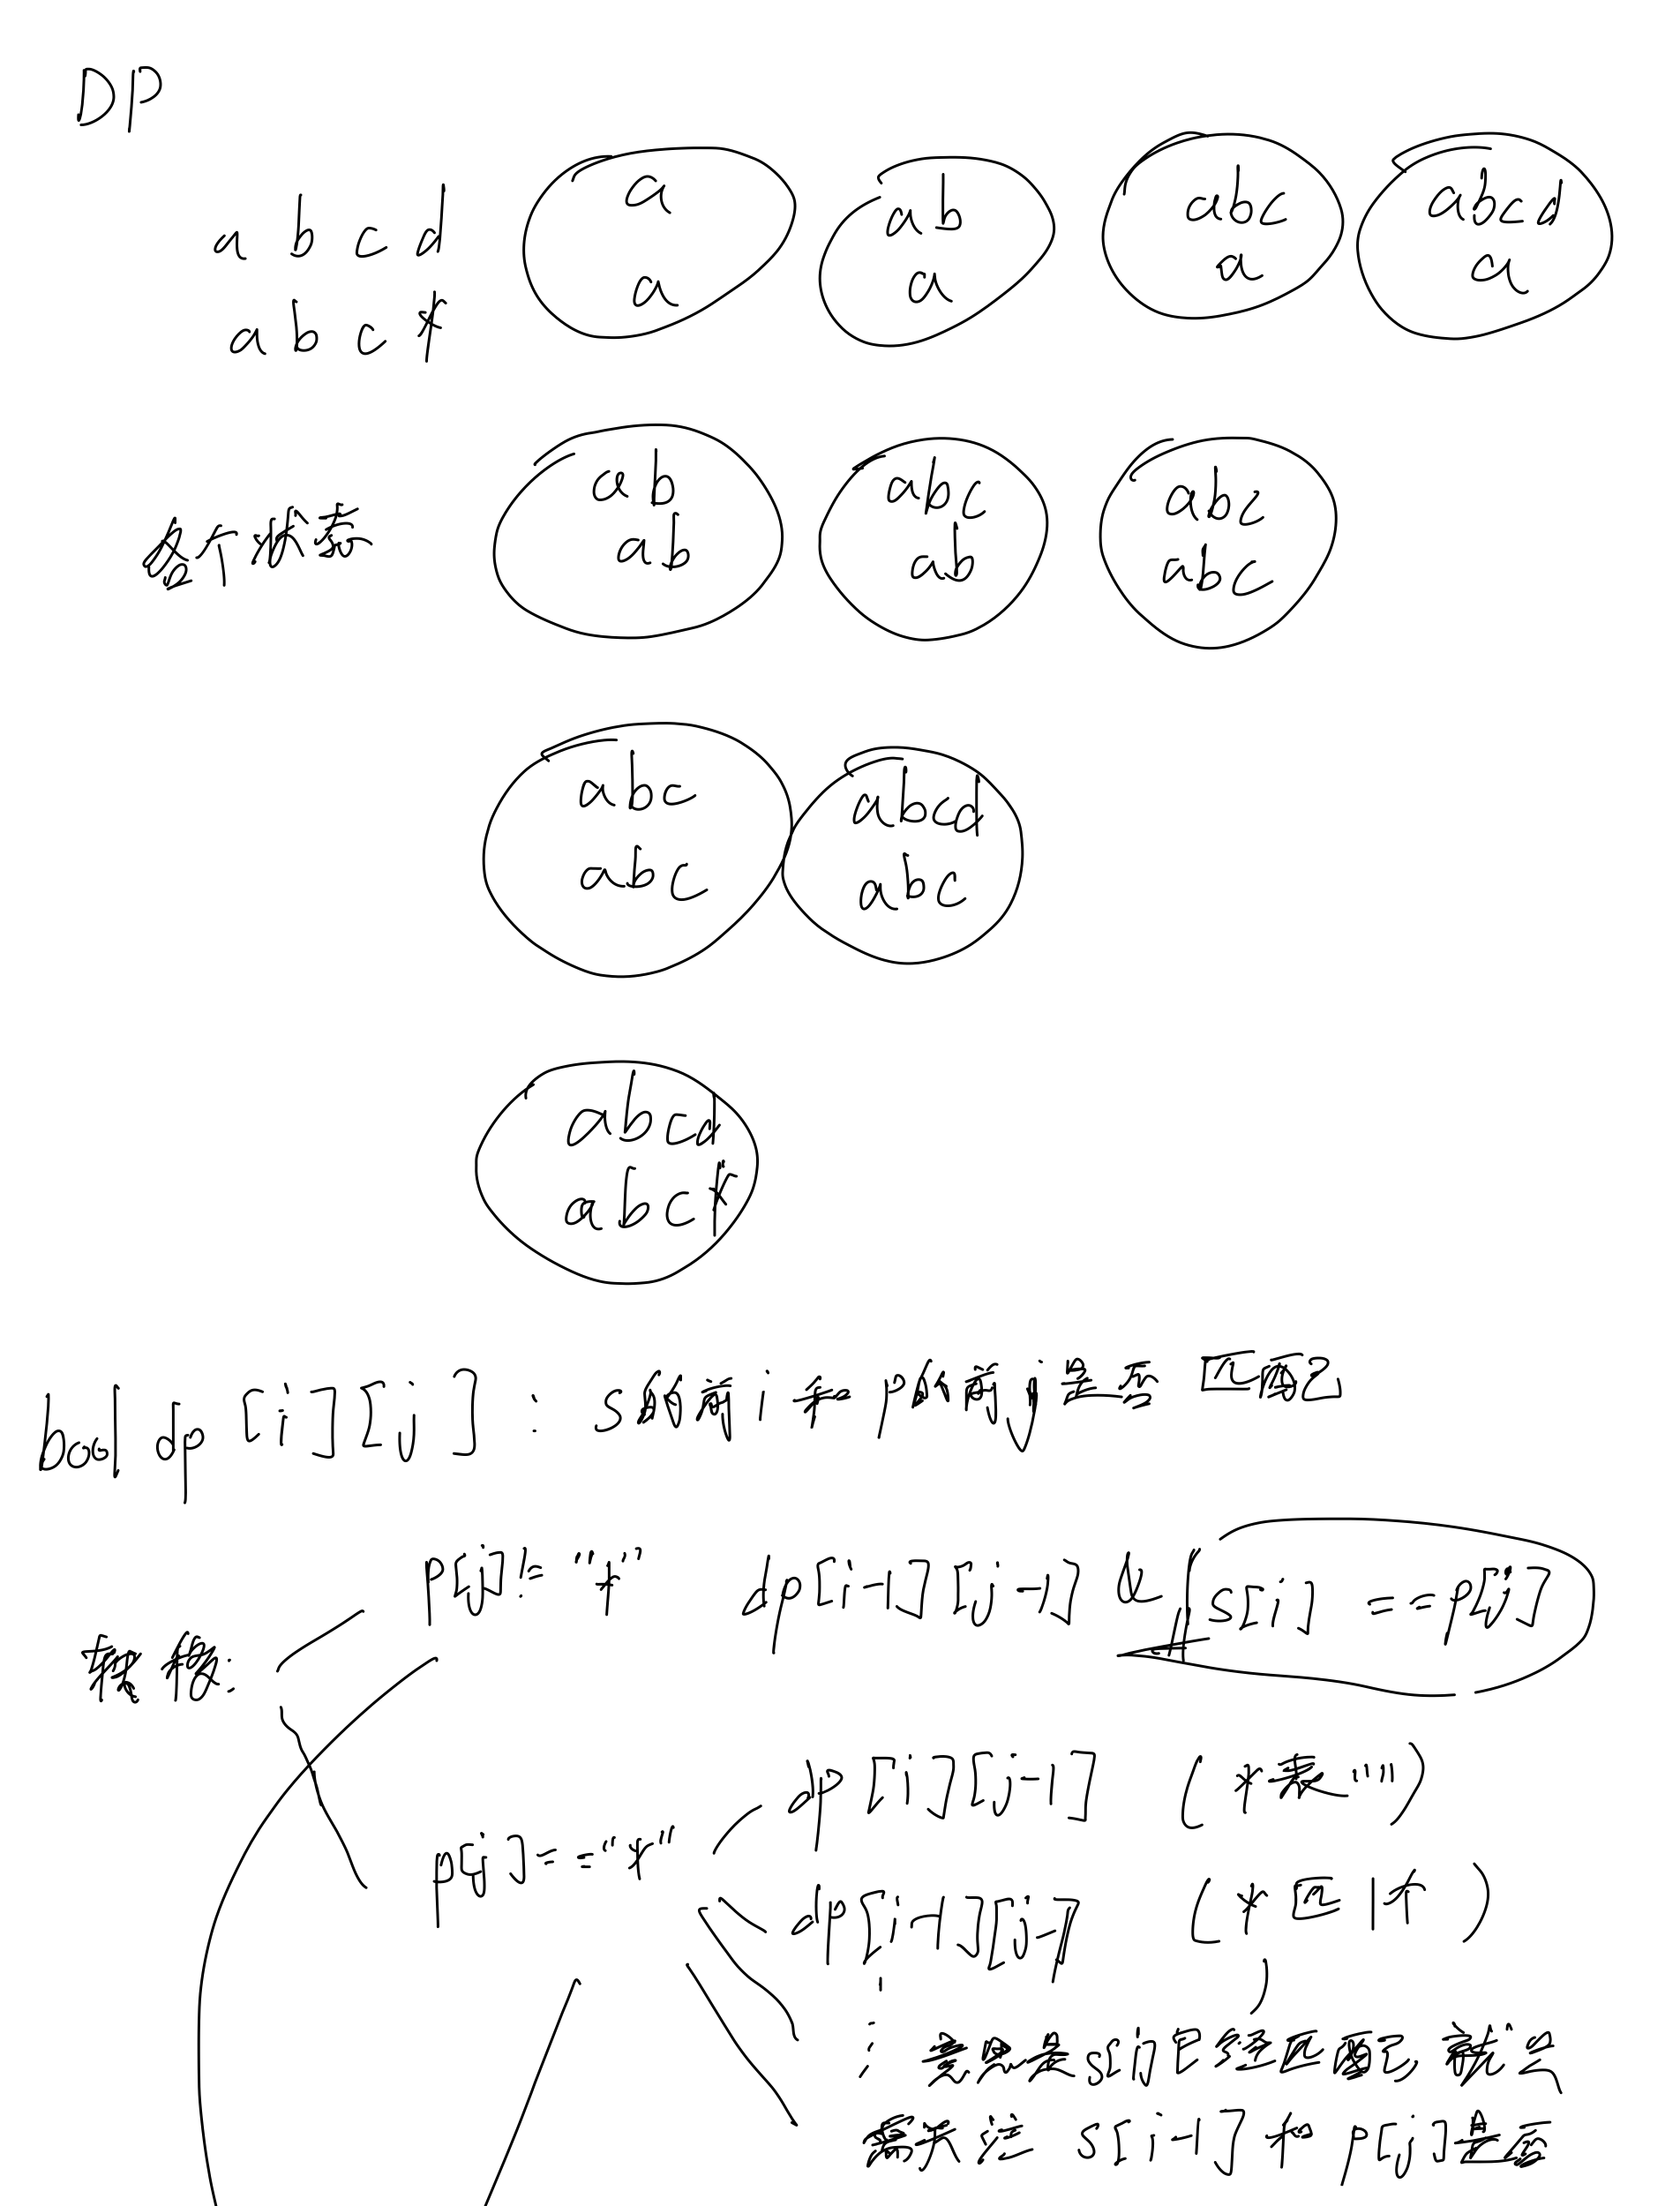 DP
a b c d
a b c *
a
a
ab
a
abc
a
abcd
a
各个状态
ab
ab
abc
ab
abc
abc
abc
abc
abcd
abc
abcd
abc*
bool dp [i][j] : s的前i和p的前j是否匹配
转移:
p[j]!="*" dp[i-1][j-1] && s[i]==p[j]
p[j]=="*"
dp[i][j-1] (*表"")
dp[i-1][j] (*匹1个)
意思是s[i]已经匹配了, 就只
需关注 s[i-1]和p[j]是否